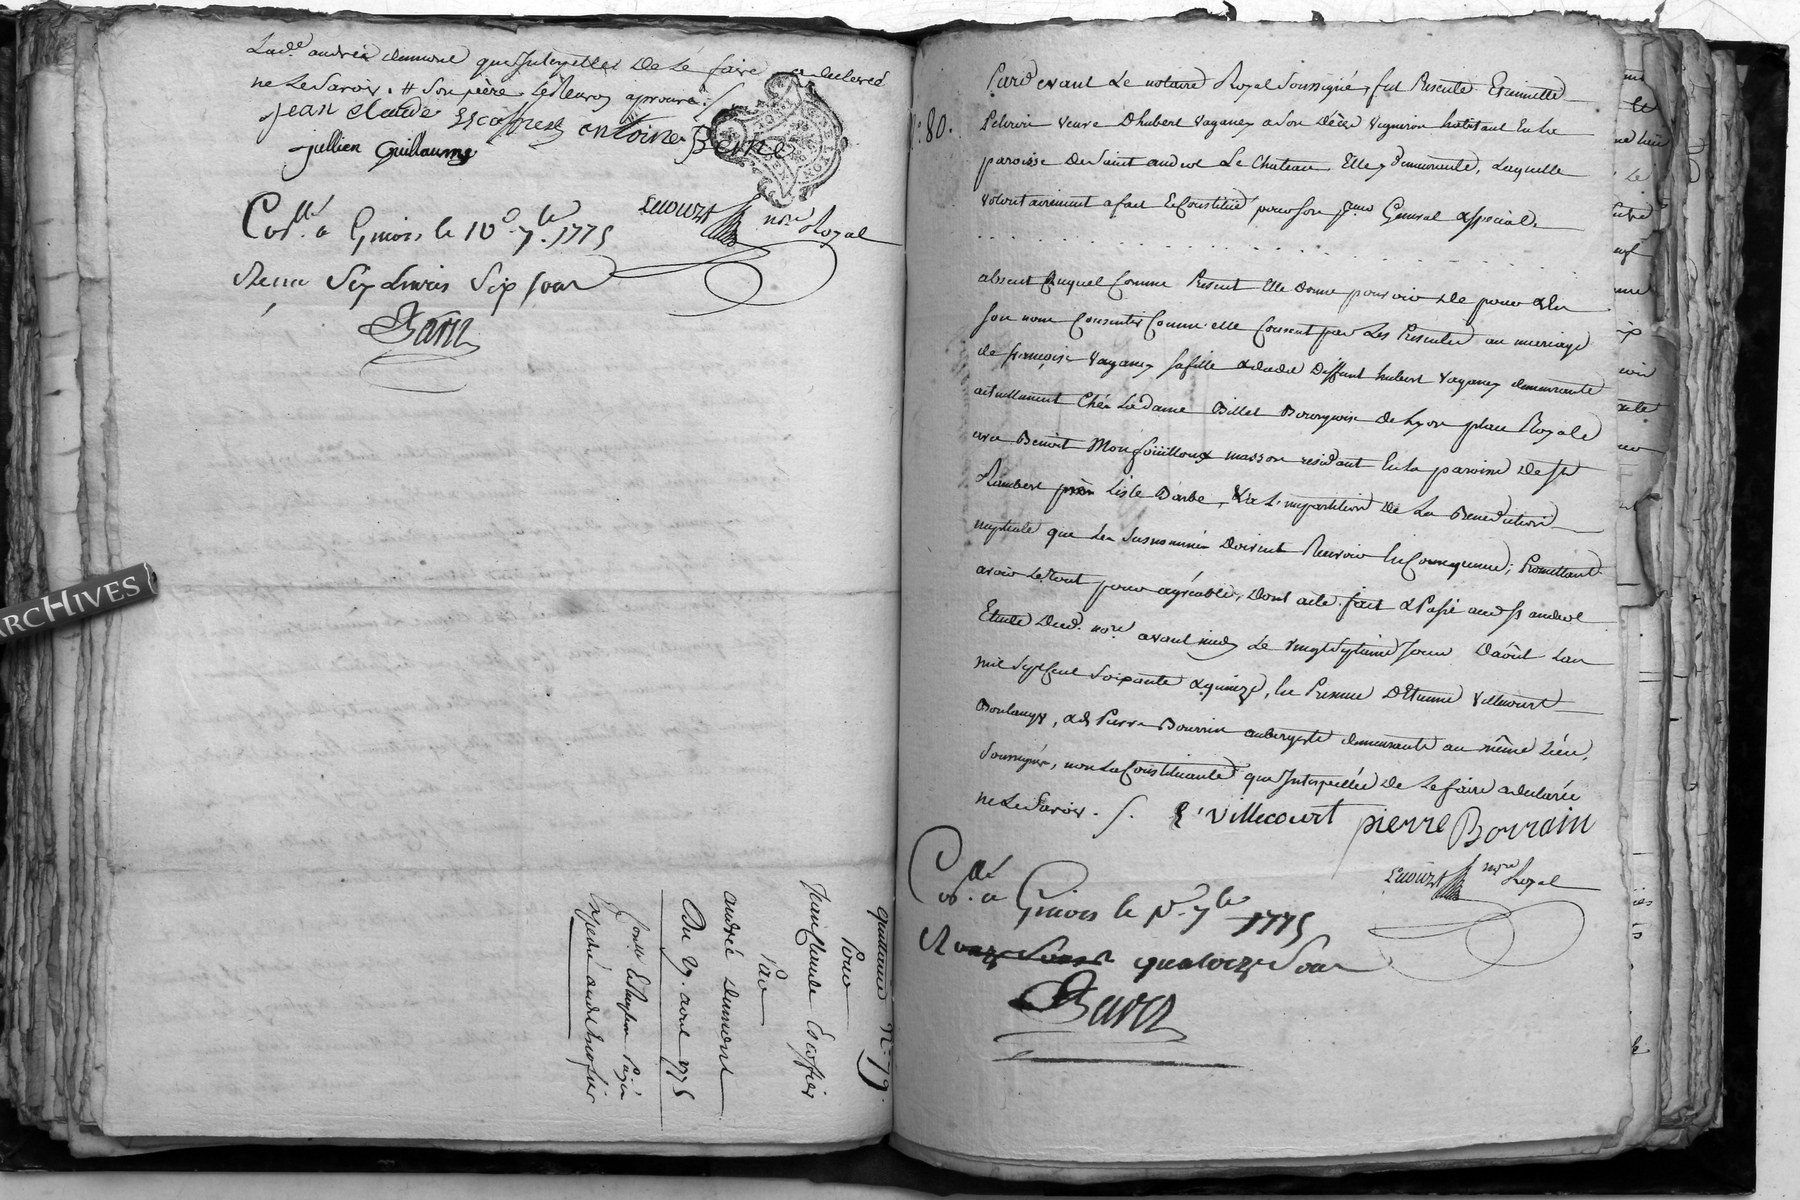 Lad.e andrée dumond que Interpellée De Le faire a declaré
ne Le Savoir . # Son père Le Neuvoz aprouvé ./.
jean claude Escoffier antoine Berne
jullien Guillaume
nre Royal
Coll.é a Givors le 10e 7.bre 1775
Reçu Six Livres Six sous
ARCHIVES
quittance N.o 79.
Pour
Jean Claude Escoffier
Par
andrée Dumond
Du 27. avril 1775
Expedié audit Escoffier
N.o 80.
Pard'evant Le notaire Royal Soussigné, fut Presente Etiennette
Pelerin veuve D'hubert vaganey a son Décès vigneron habitant En la
paroisse De Saint andeol Le Chateau Elle y demeurante, Laquelle
volontairement a fait & Constitué pour son Pr.eur General & special
. . . . . . . . . . . . . . . . . .
absent Auquel Comme Present Elle Donne pouvoir de pour & En
son nom Consentir Comme elle Consent par Les Presentes au mariage
de françoise vaganey sa fille & dudit Deffunt hubert vaganey demeurante
actuellement Chés La Dame Billet Bourgeoise de Lyon place Royale
avec Benoit Monfouilloux masson residant En la paroisse De St
Rambert près L'isle Barbe, & a L'impartition De La Benediction
nuptiale que Les Susnommés Doivent Recevoir En Consequence; Promettant
avoir Le tout pour agréable, Dont acte fait & Passé aud. St andeol
Etude Dud. no.re avant midy Le vingt septieme Jour D'aôut L'an
mil sept cent soixante & quinze, En Presence D'Etienne villecourt
Boulanger, & de Pierre Bourrin aubergiste demeurants au même Lieu,
Soussignés, non La Constituante que Interpellée De Le faire a declarée
ne Le Savoir ./. E villecourt pierre Bourrain
nre Royal
Coll.é a Givors le 1er 7.bre 1775
quatorze sous